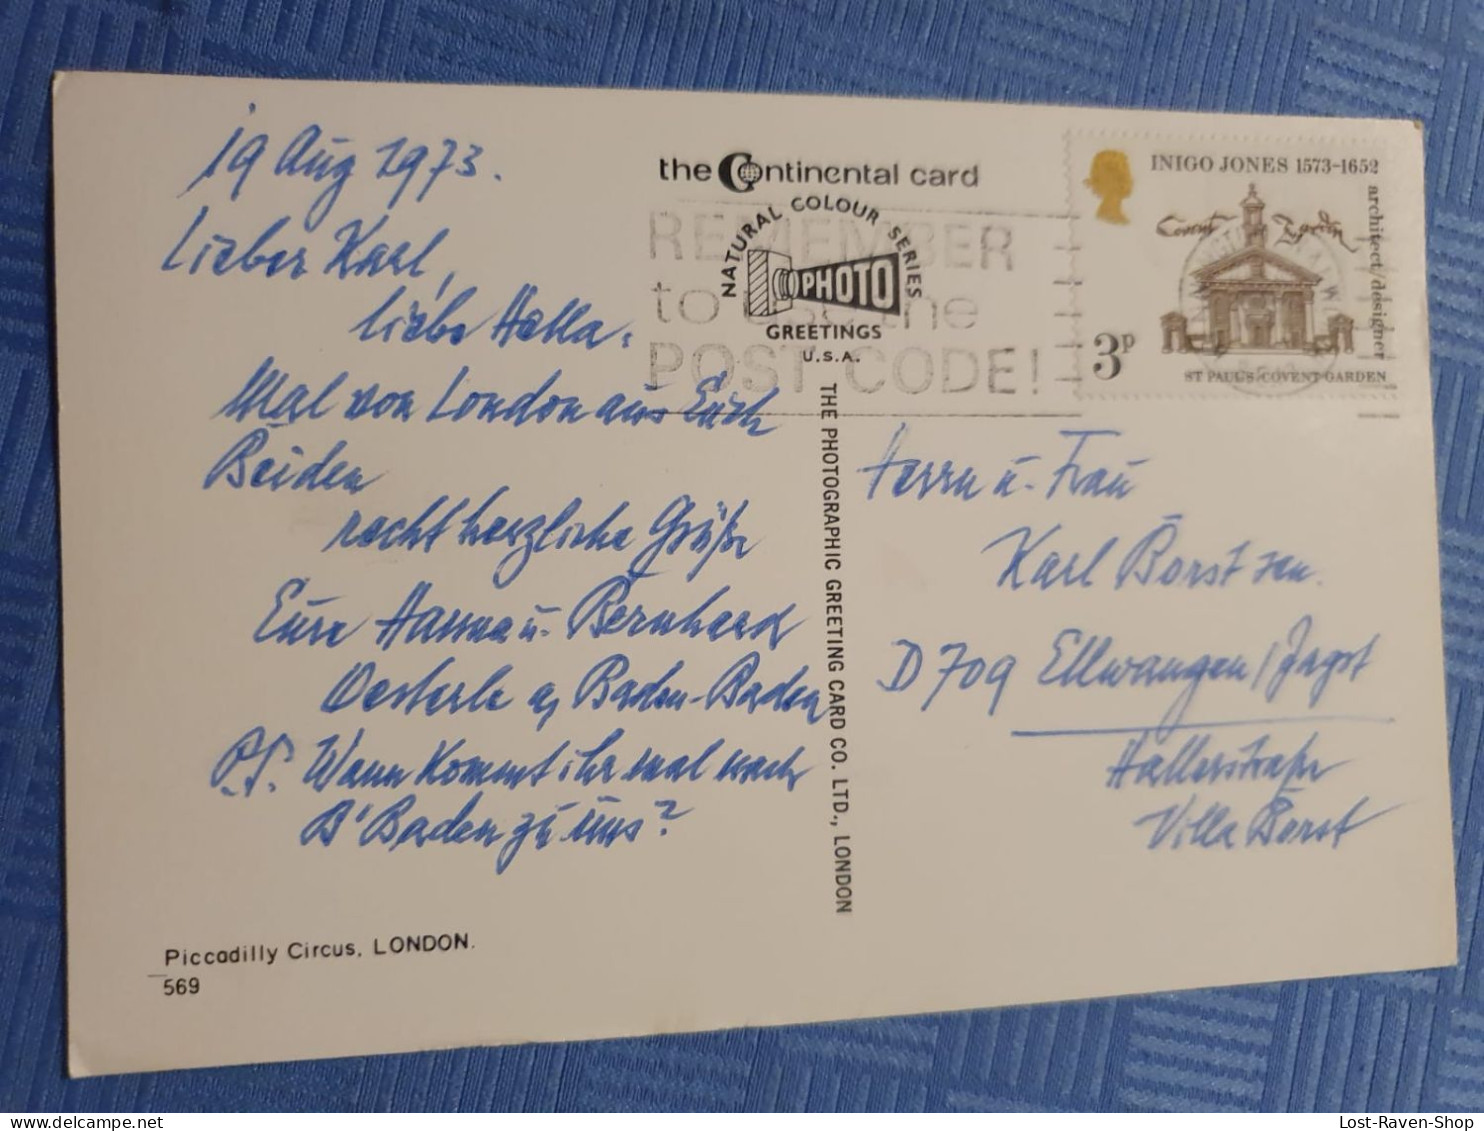 19 Aug 1973.
Lieber Karl,
liebe Hella,
Mal von London aus Euch
Beiden
recht herzliche Grüße
Eure Hanna u. Bernhard
Oesterle a, Baden-Baden
P.S. Wann kommt ihr mal nach
B'Baden zu uns?
Piccadilly Circus, LONDON.
569
the Continental card
NATURAL COLOUR SERIES
PHOTO
GREETINGS
U.S.A.
REMEMBER
to use the
POST CODE!
THE PHOTOGRAPHIC GREETING CARD CO. LTD., LONDON
INIGO JONES 1573-1652
architect/designer
Covent Garden
3P
ST PAUL'S·COVENT GARDEN
Herrn u. Frau
Karl Borst sen.
D 709 Ellwangen/Jagst
Hallerstraße
Villa Borst
Lost-Raven-Shop